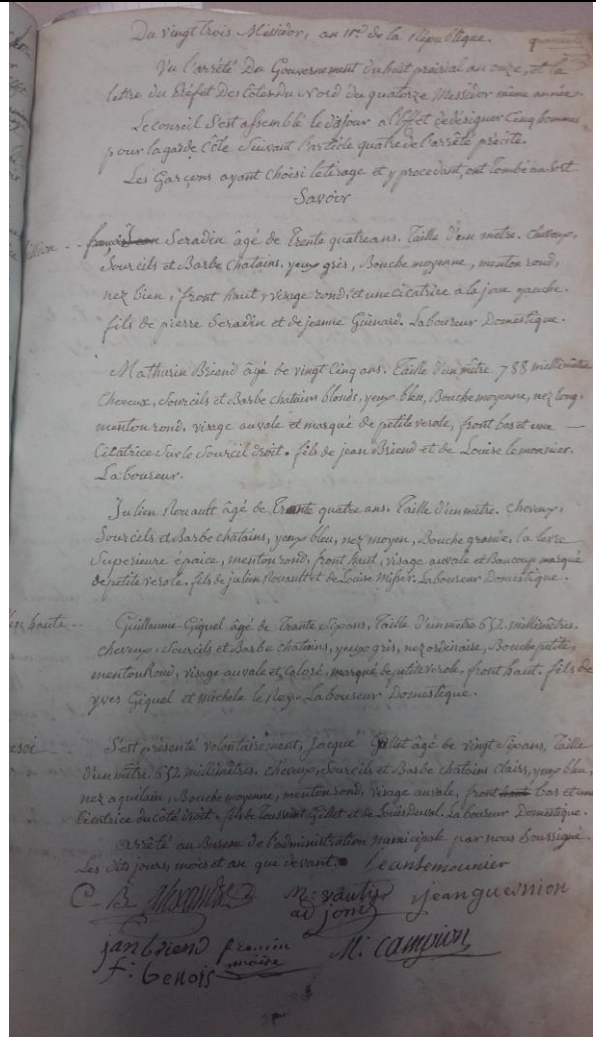 Du vingt trois Messidor, an 11e. de la République.
Vu l'arrêté Du Gouvernement du huit prairial an onze, et la
lettre du Préfet Des Côtes Du Nord du quatorze Messidor même année
Le conseil S'est assemblé le dit jour a l'Effet de désigner Cinq hommes
pour la garde Côte Suivant l'article quatre de l'arrêté précité.
Les Garçons ayant Choisi le tirage et y procedant, ont tombé au Sort
Savoir
françois Seradin âgé de trente quatre ans. Taille d'un metre. cheveux,
Sourcils et Barbe chatains. yeux gris, Bouche moyenne, menton rond,
nez bien, front haut, visage rond, et une cicatrice a la joue gauche.
fils de pierre Seradin et de jeanne Guenard. Laboureur Domestique.
Mathurin Briend âgé de vingt Cinq ans. Taille d'un mètre 788 millimètres
Cheveux, Sourcils et Barbe chatains blonds, yeux bleu, Bouche moyenne, nez long,
menton rond, visage auvale et marqué de petite verole, front bas et une
Citatrice Sur le Sourcil droit. fils de jean Briend et de Louise lemonier.
Laboureur.
Julien Rouault âgé de Trante quatre ans. Taille d'un metre. cheveux,
Sourcils et Barbe chatains, yeux bleu, nez moyen, Bouche grande, la levre
Superieure épaice, menton rond, front haut, visage auvale et Baucoup marqué
de petite verole. fils de julien Rouault et de Louise. Laboureur Domestique.
Guillaume Giquel âgé de Trante Six ans, Taille d'un metre 652 millimètres.
cheveux, Sourcils et Barbe chatains, yeux gris, nez ordenaire, Bouche petite,
menton Rond, visage auvale et Coloré, marqué de petite verole, front haut. fils de
yves Giquel et michele le Rey. Laboureur Domestique.
S'est présenté volontairement, Jacque Gillet âgé de vingt Six ans, Taille
d'un metre. 652 millimètres. cheveux, Sourcils et Barbe chatains clairs, yeux bleu,
nez aquilain, Bouche moyenne, menton rond, visage auvale, front haut bas et une
Cicatrice au Côté droit. fils de toussaint Gillet et de Louise Duval. Laboureur Domestique.
arrêté au Bureau de l'administration municipale par nous Soussigné
Les dits jours, mois et an que devant. jean lemounier
C. B. alexandre M: vautier jean guesnion
adjoint
jan briend fremin M: campion
maire
f: benois